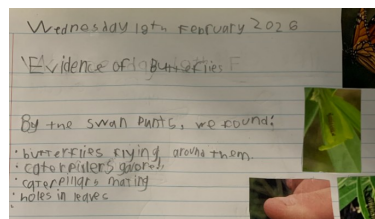 Wednesday 18th February 2026
'Evidence of Butterflies
By the swan plants, we found:
• butterflies flying around them.
• caterpillers
• caterpillars mating
• holes in leaves